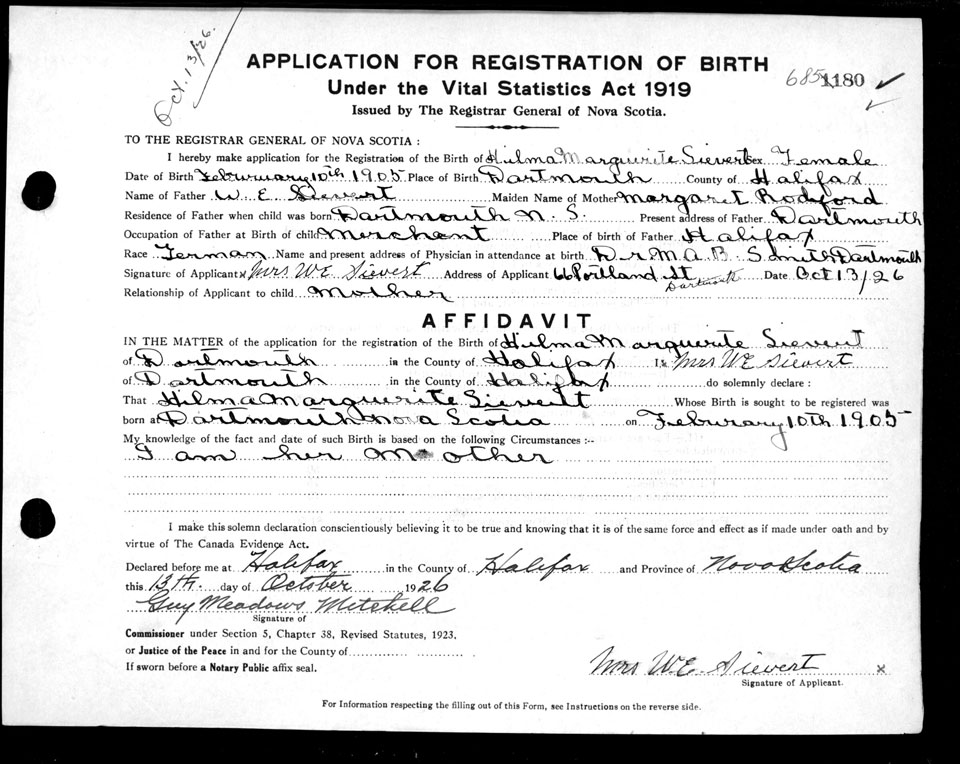 Oct. 13/26.
APPLICATION FOR REGISTRATION OF BIRTH
6851180
Under the Vital Statistics Act 1919
Issued by The Registrar General of Nova Scotia.
TO THE REGISTRAR GENERAL OF NOVA SCOTIA :
I hereby make application for the Registration of the Birth of Hilma Margurite Sievert Sex Female
Date of Birth Februrary 10th 1905 Place of Birth Dartmouth County of Halifax
Name of Father W. E Sievert Maiden Name of Mother Margaret Rodford
Residence of Father when child was born Dartmouth N. S. Present address of Father Dartmouth
Occupation of Father at Birth of child Merchant Place of birth of Father Halifax
Race German Name and present address of Physician in attendance at birth Dr M. A. B. Smith Dartmouth
Signature of Applicant x Mrs WE Sievert Address of Applicant 66 Portland St Dartmouth Date Oct 13/26
Relationship of Applicant to child Mother
AFFIDAVIT
IN THE MATTER of the application for the registration of the Birth of Hilma Margurite Sievert
of Dartmouth in the County of Halifax I, Mrs WE Sievert
of Dartmouth in the County of Halifax do solemnly declare :
That Hilma Marguerite Sievert Whose Birth is sought to be registered was
born at Dartmouth Nova Scotia on Februrary 10th 1905
My knowledge of the fact and date of such Birth is based on the following Circumstances :--
I am her Mother
I make this solemn declaration conscientiously believing it to be true and knowing that it is of the same force and effect as if made under oath and by
virtue of The Canada Evidence Act.
Declared before me at Halifax in the County of Halifax and Province of Nova Scotia
this 13th. day of October 1926
Guy Meadows Mitchell
Signature of
Commissioner under Section 5, Chapter 38, Revised Statutes, 1923.
or Justice of the Peace in and for the County of
If sworn before a Notary Public affix seal.
Mrs WE Sievert x
Signature of Applicant.
For Information respecting the filling out of this Form, see Instructions on the reverse side.